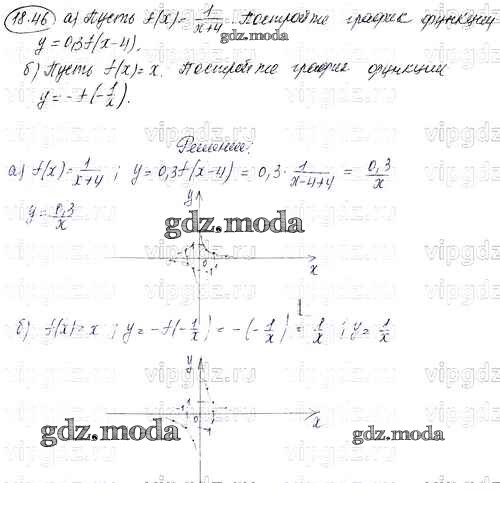 18.46 а) Пусть f(x)= 1/(x+4). Постройте график функции
y = 0,3f(x-4).
б) Пусть f(x)=x. Постройте график функции
y = -f(-1/x).
Решение:
а) f(x)= 1/(x+4) ; y = 0,3f(x-4) = 0,3 · 1/(x-4+4) = 0,3/x
y = 0,3/x
y
gdz.moda
-1 0 1
x
б) f(x)=x ; y = -f(-1/x) = -(-1/x) = 1/x ; y = 1/x
y
-1 0 1
x
gdz.moda
gdz.moda
vipgdz.ru